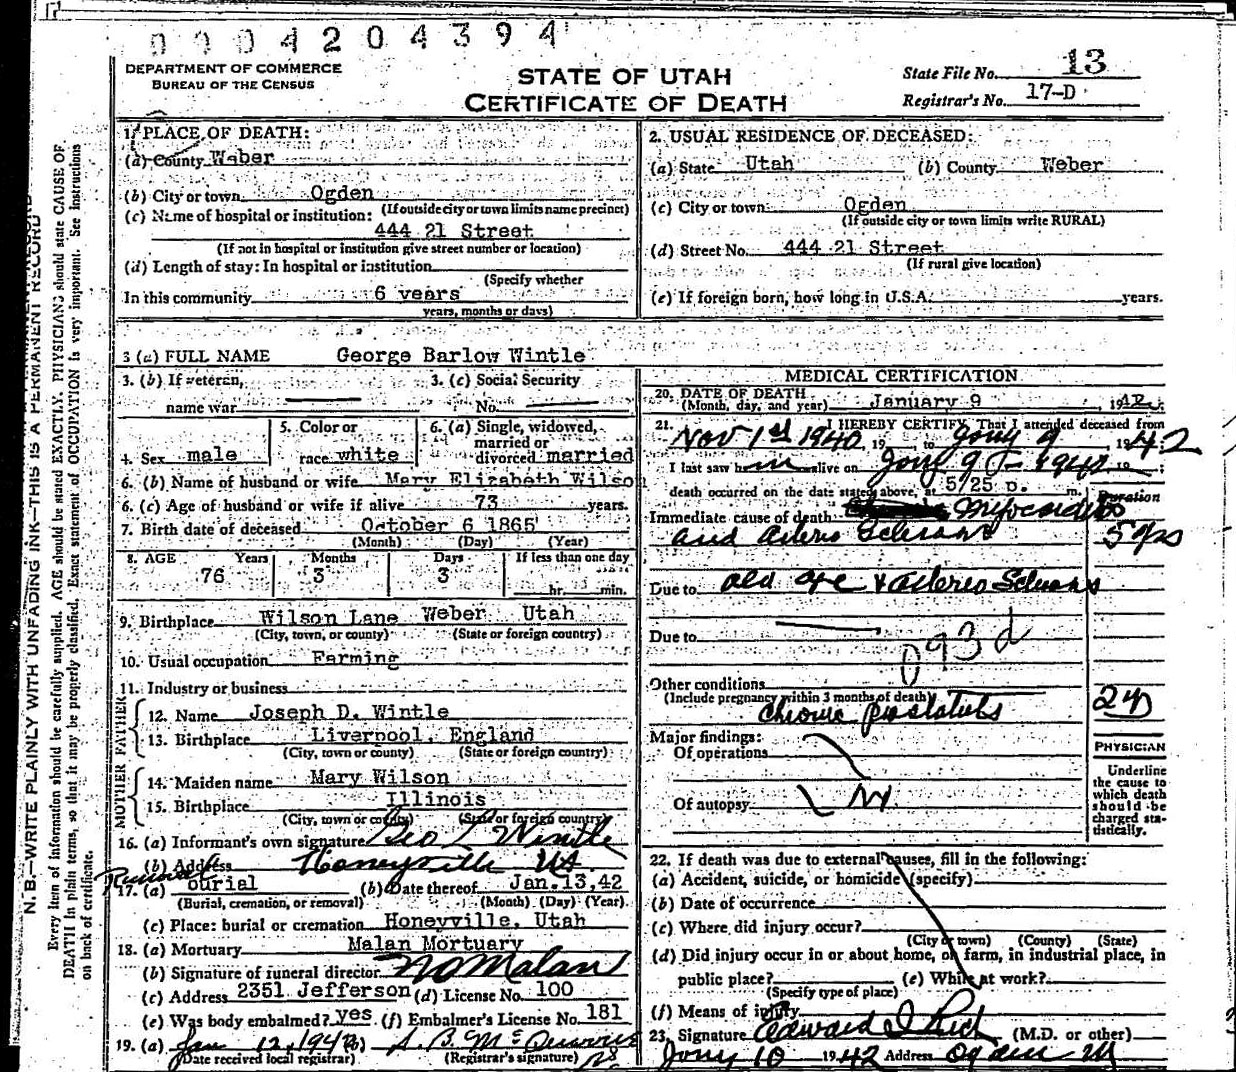 0004204394
DEPARTMENT OF COMMERCE
BUREAU OF THE CENSUS
STATE OF UTAH
CERTIFICATE OF DEATH
State File No. 13
Registrar's No. 17-D
N. B.—WRITE PLAINLY WITH UNFADING INK—THIS IS A PERMANENT RECORD
Every item of information should be carefully supplied. AGE should be stated EXACTLY. PHYSICIANS should state CAUSE OF
DEATH in plain terms, so that it may be properly classified. Exact statement of OCCUPATION is very important. See instructions
on back of certificate.
1. PLACE OF DEATH:
(a) County Weber
(b) City or town Ogden
(If outside city or town limits name precinct)
(c) Name of hospital or institution:
444 21 Street
(If not in hospital or institution give street number or location)
(d) Length of stay: In hospital or institution
(Specify whether
In this community 6 years
years, months or days)
2. USUAL RESIDENCE OF DECEASED:
(a) State Utah (b) County Weber
(c) City or town: Ogden
(If outside city or town limits write RURAL)
(d) Street No. 444 21 Street
(If rural give location)
(e) If foreign born, how long in U.S.A. years.
3 (a) FULL NAME George Barlow Wintle
3. (b) If veteran, 3. (c) Social Security
name war No.
4. Sex male 5. Color or race white 6. (a) Single, widowed, married or divorced married
6. (b) Name of husband or wife Mary Elizabeth Wilson
6. (c) Age of husband or wife if alive 73 years.
7. Birth date of deceased October 6 1865
(Month) (Day) (Year)
8. AGE Years Months Days If less than one day
76 3 3 hr. min.
9. Birthplace Wilson Lane Weber Utah
(City, town, or county) (State or foreign country)
10. Usual occupation Farming
11. Industry or business
FATHER
12. Name Joseph D. Wintle
13. Birthplace Liverpool, England
(City, town or county) (State or foreign country)
MOTHER
14. Maiden name Mary Wilson
15. Birthplace Illinois
(City, town or county) (State or foreign country)
16. (a) Informant's own signature Geo L Wintle
(b) Address Honeyville UT
Removal
17. (a) burial (b) Date thereof Jan.13,42
(Burial, cremation, or removal) (Month) (Day) (Year)
(c) Place: burial or cremation Honeyville, Utah
18. (a) Mortuary Malan Mortuary
(b) Signature of funeral director Malan
(c) Address 2351 Jefferson (d) License No. 100
(e) Was body embalmed? yes (f) Embalmer's License No. 181
19. (a) Jan 12, 1942 (b)
(Date received local registrar) (Registrar's signature)
MEDICAL CERTIFICATION
20. DATE OF DEATH
(Month, day, and year) January 9, 1942
21. I HEREBY CERTIFY, That I attended deceased from
Nov 1st 1940, 19 to Jany 9 1942
I last saw him alive on Jany 9
death occurred on the date stated above, at 5/25 p. m.
Duration
Immediate cause of death Myocarditis
and Arterio Sclerosis 5 yrs
Due to old age & Arterio Sclerosis
Due to
093d
Other conditions
(Include pregnancy within 3 months of death)
Chronic prostatitis 2 y
Major findings:
Of operations
Of autopsy
PHYSICIAN
Underline
the cause to
which death
should be
charged sta-
tistically.
22. If death was due to external causes, fill in the following:
(a) Accident, suicide, or homicide (specify)
(b) Date of occurrence
(c) Where did injury occur?
(City or town) (County) (State)
(d) Did injury occur in or about home, or farm, in industrial place, in
public place? (e) While at work?
(Specify type of place)
(f) Means of injury
23. Signature Edward I Rich (M.D. or other)
Jany 10 1942 Address Ogden